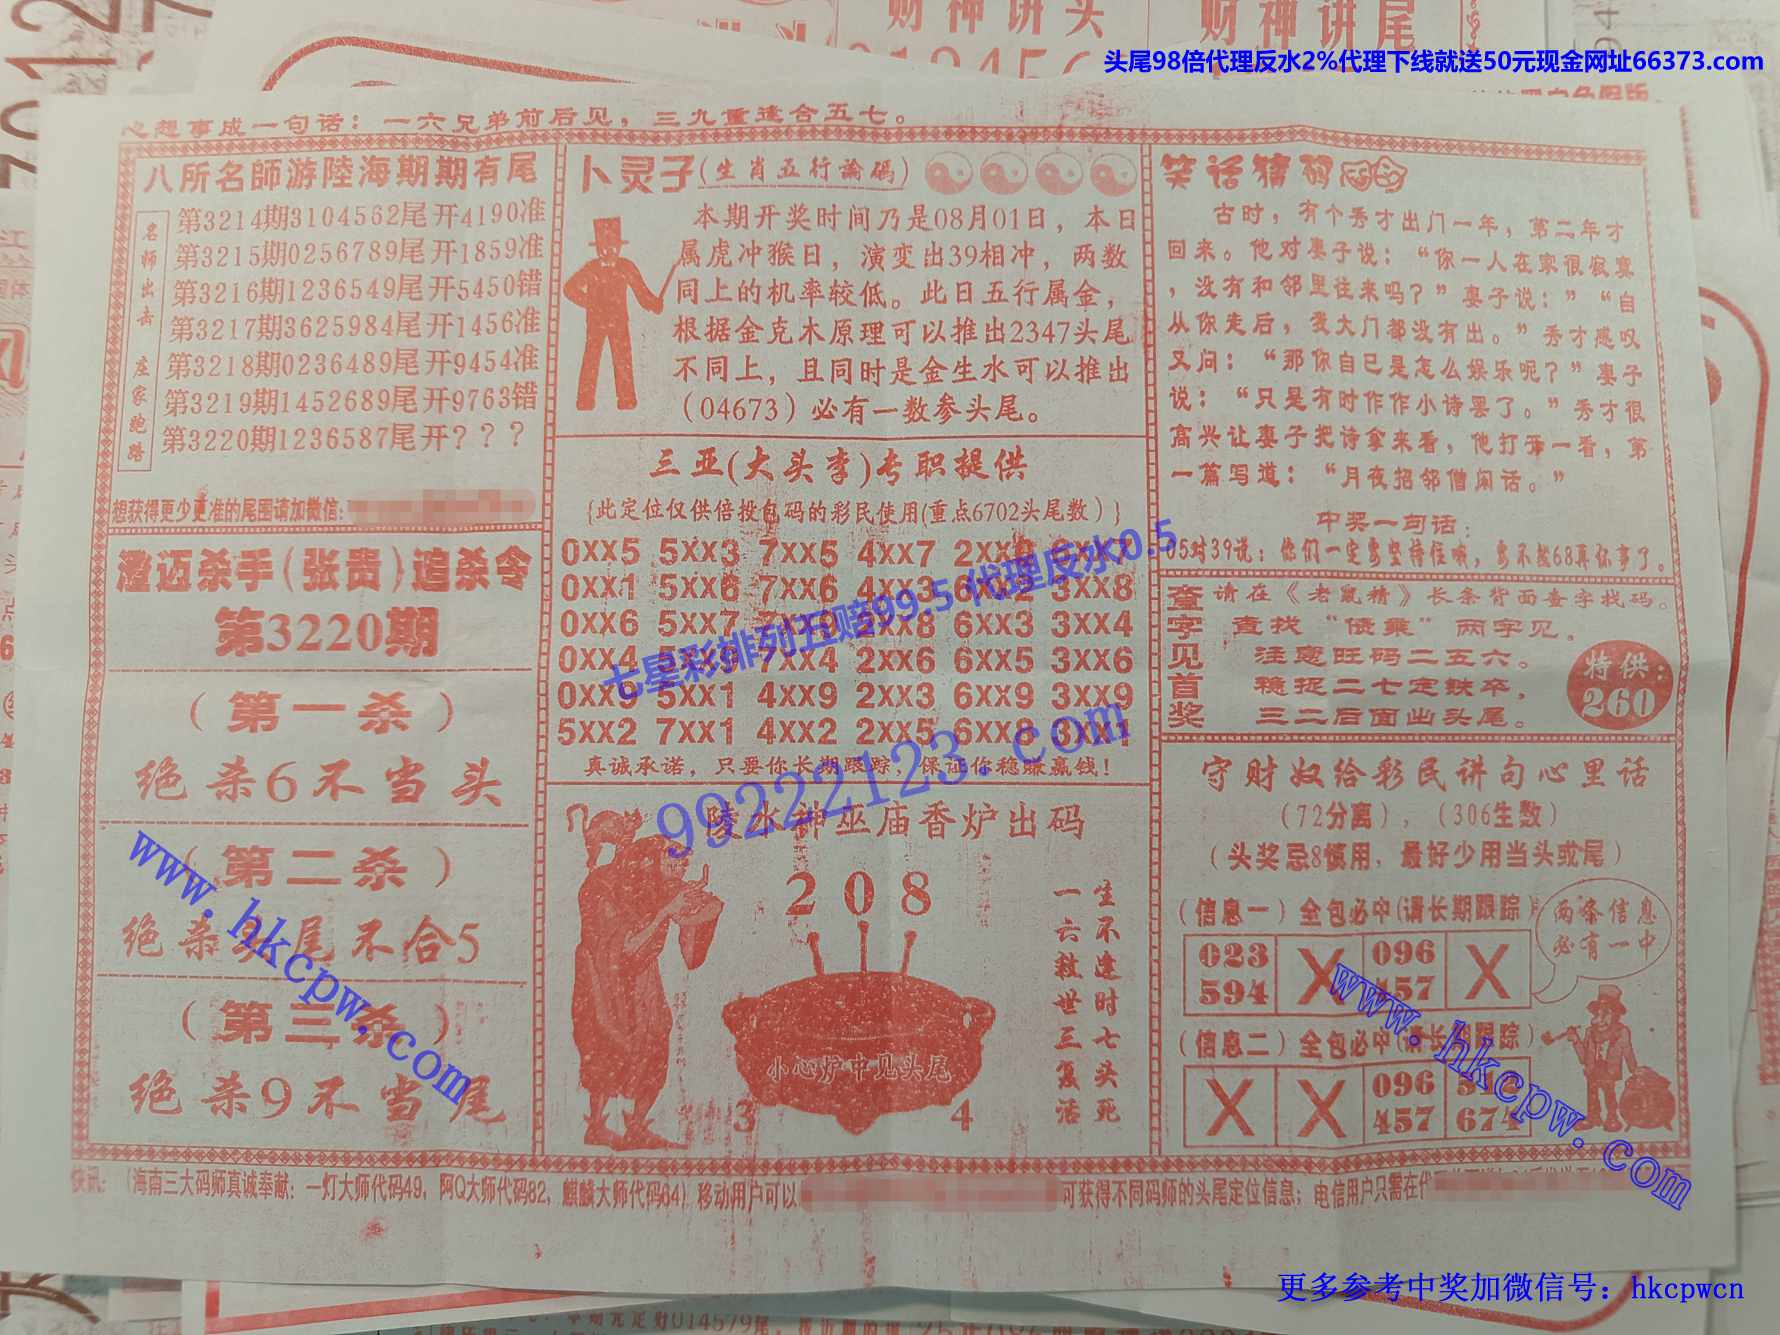 财神讲头
财神讲尾
头尾98倍代理反水2%代理下线就送50元现金网址66373.com
心想事成一句话：一六兄弟前后见，三九重逢合五七。
八所名師游陸海期期有尾
名师出击 庄家跑路
第3214期3104562尾开4190准
第3215期0256789尾开1859准
第3216期1236549尾开5450错
第3217期3625984尾开1456准
第3218期0236489尾开9454准
第3219期1452689尾开9763错
第3220期1236587尾开？？？
想获得更少更准的尾围请加微信:
澄迈杀手(张贵)追杀令
第3220期
（第一杀）
绝杀6不当头
（第二杀）
绝杀头尾不合5
（第三杀）
绝杀9不当尾
卜灵子(生肖五行論碼)
本期开奖时间乃是08月01日，本日
属虎冲猴日，演变出39相冲，两数
同上的机率较低。此日五行属金，
根据金克木原理可以推出2347头尾
不同上，且同时是金生水可以推出
（04673）必有一数参头尾。
三亚(大头李)专职提供
{此定位仅供倍投包码的彩民使用(重点6702头尾数）}
0XX5 5XX3 7XX5 4XX7
0XX1 5XX6 7XX6 4XX3 3XX8
0XX6 5XX7 2XX8 6XX3 3XX4
0XX4 7XX4 2XX6 6XX5 3XX6
0XX9 5XX1 4XX9 2XX3 6XX9 3XX9
5XX2 7XX1 4XX2 2XX5 6XX8 3XX1
真诚承诺，只要你长期跟踪，保证你稳赚赢钱！
七星彩排列五赔99.5 代理反水0.5
99222123.com
陵水神巫庙香炉出码
208
小心炉中见头尾
3
4
生不逢时七头死
一六救世三复活
笑话猜码
古时，有个秀才出门一年，第二年才
回来。他对妻子说：“你一人在家很寂寞
，没有和邻里往来吗？”妻子说：”“自
从你走后，我大门都没有出。”秀才感叹
又问：“那你自已是怎么娱乐呢？”妻子
说：“只是有时作作小诗罢了。”秀才很
高兴让妻子把诗拿来看，他打开一看，第
一篇写道：“月夜招邻僧闲话。”
中奖一句话：
05对39说：他们一定要坚持住哦，要不松68真你事了。
查字见首奖
请在《老鼠精》长条背面查字找码。
查找“债乘”两字见。
注意旺码二五六。
稳捉二七定铁卒，
三二后面出头尾。
特供：
260
守财奴给彩民讲句心里话
（72分离），（306生数）
（头奖忌8慎用，最好少用当头或尾）
（信息一）全包必中(请长期跟踪）
023 594 X 096 457 X
两条信息
必有一中
（信息二）全包必中(请长期跟踪）
X X 096 457 674
www.hkcpw.com
www.hkcpw.com
快讯：(海南三大码师真诚奉献：一灯大师代码49，阿Q大师代码82，麒麟大师代码64）移动用户可以
可获得不同码师的头尾定位信息；电信用户只需在代
更多参考中奖加微信号：hkcpwcn